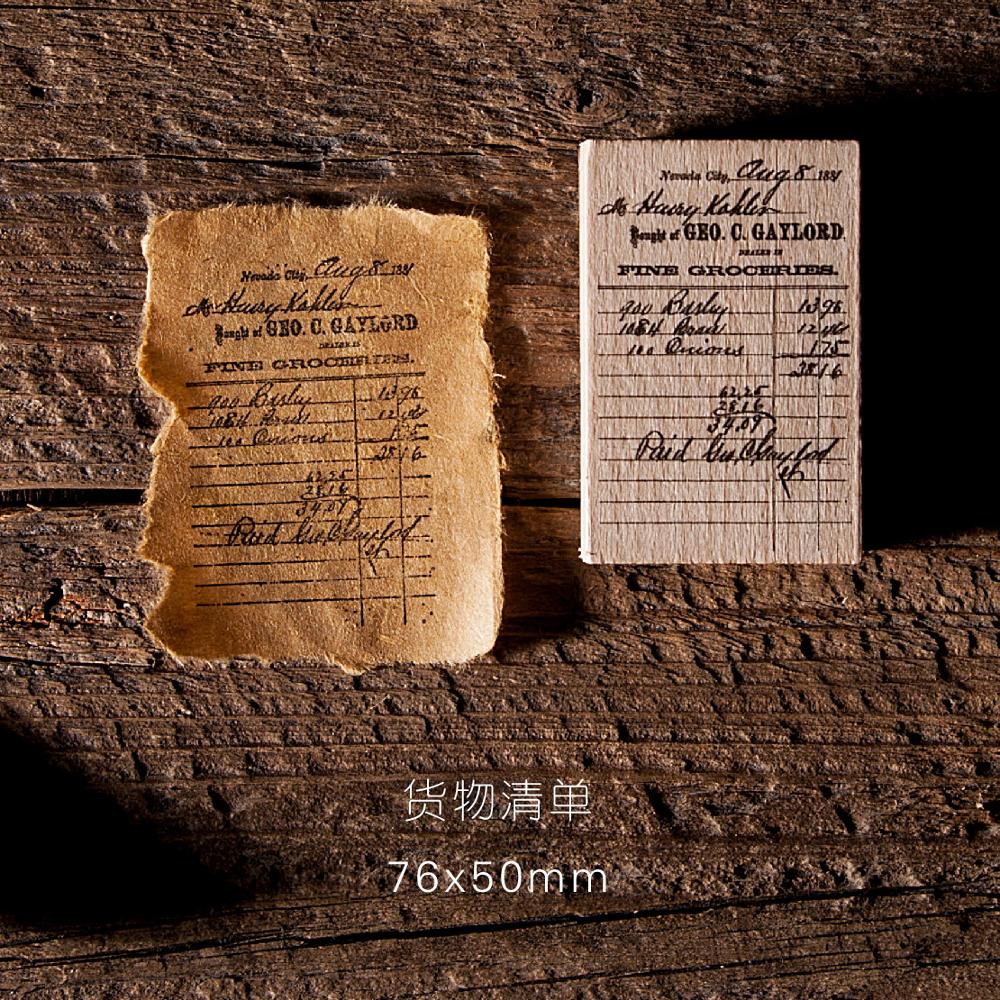 Nevada City, Aug 8 1881
Mr Henry Kohler
Bought of GEO. C. GAYLORD
DEALER IN
FINE GROCERIES.
900 Barley 13 96
1084 Bran
100 Onions 1 75
28 16
62.25
28.16
34.09
Paid Geo C Gaylord
Nevada City, Aug 8 1881
Mr Henry Kohler
Bought of GEO. C. GAYLORD
DEALER IN
FINE GROCERIES.
900 Barley 13 96
1084 Bran
100 Onions 1 75
28 16
62.25
28.16
34.09
Paid Geo C Gaylord
货物清单
76x50mm